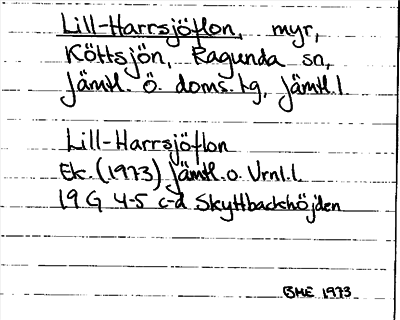 Lill-Harrsjöflon, myr,
Köttsjön, Ragunda sn,
Jämtl. ö. doms. tg, Jämtl. l.
Lill-Harrsjöflon
Ek. (1973) Jämtl. o. Vrnl. l.
19 G 4-5 c-d Skyttbackhöjden
BHE 1973